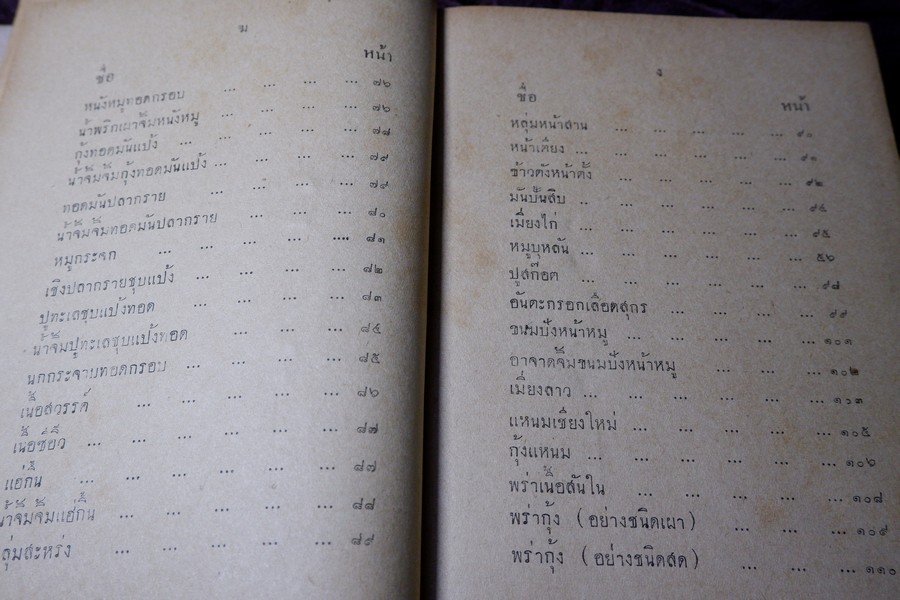 ฆ
หน้า
ชื่อ
หนังหมูทอดกรอบ ... ... ... ... ๗๖
น้ำพริกเผาจิ้มหนังหมู ... ... ... ๗๖
กุ้งทอดมันแป้ง ... ... ... ... ๗๘
น้ำจิ้มจิ้มกุ้งทอดมันแป้ง ... ... ... ... ๗๙
ทอดมันปลากราย ... ... ... ๗๙
น้ำจิ้มจิ้มทอดมันปลากราย ... ... ... ๘๐
หมูกระจก ... ... ... .... ๘๑
เชิงปลากรายชุบแป้ง ... ... ... ... ๘๒
ปูทะเลชุบแป้งทอด ... ... ... ... ๘๓
น้ำจิ้มปูทะเลชุบแป้งทอด ... ... ... ๘๔
นกกระจาบทอดกรอบ ... ... ... ... ๘๕
เนื้อสวรรค์ ... ... ... ... ๘๖
เนื้อซีอิ๊ว ... ... ... ... ... ๘๗
แฮ่กึ๊น ... ... ... ... ... ๘๗
น้ำจิ้มจิ้มแฮ่กึ๊น ... ... ... ... ๘๘
ลุ่มสะหร่ง ... ... ... ... ๘๙
ง
ชื่อ หน้า
หลุ่มหน้าสาน ... ... ... ... ๙๐
หน้าเตียง ... ... ... ... ... ๙๑
ข้าวตังหน้าตั้ง ... ... ... ... ๙๒
มันปั้นสิบ ... ... ... ... ... ๙๔
เมี่ยงไก่ ... ... ... ... ... ๙๕
หมูบุหลัน ... ... ... ... ... ๕๖
ปูสก๊อต ... ... ... ... ... ๙๘
อันตะกรอกเลือดสุกร ... ... ... ... ๙๙
ขนมปังหน้าหมู ... ... ... ... ๑๐๑
อาจาดจิ้มขนมปังหน้าหมู ... ... ... ๑๐๒
เมี่ยงลาว ... ... ... ... ... ๑๐๓
แหนมเชียงใหม่ ... ... ... ... ๑๐๕
กุ้งแหนม ... ... ... ... ... ๑๐๖
พร่าเนื้อสันใน ... ... ... ... ๑๐๘
พร่ากุ้ง (อย่างชนิดเผา) ... ... ... ๑๐๙
พร่ากุ้ง (อย่างชนิดสด) ... ... ... ๑๑๐